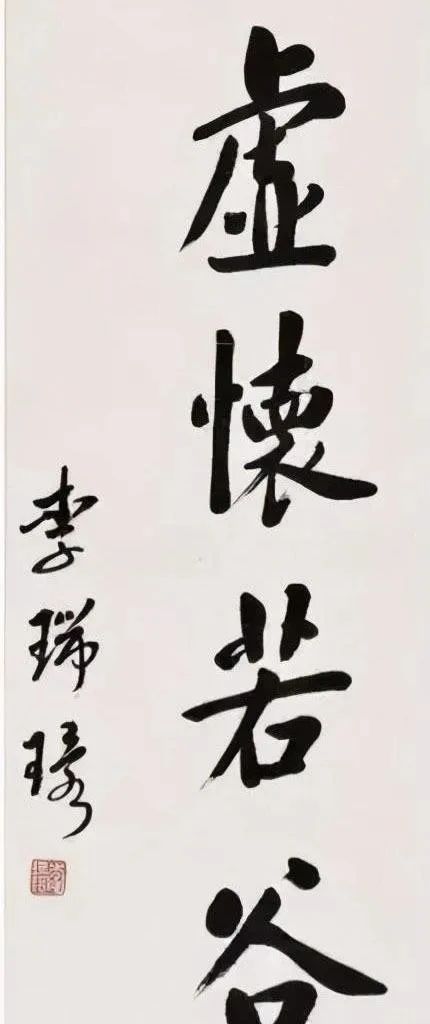 虛懷若谷
李瑞環